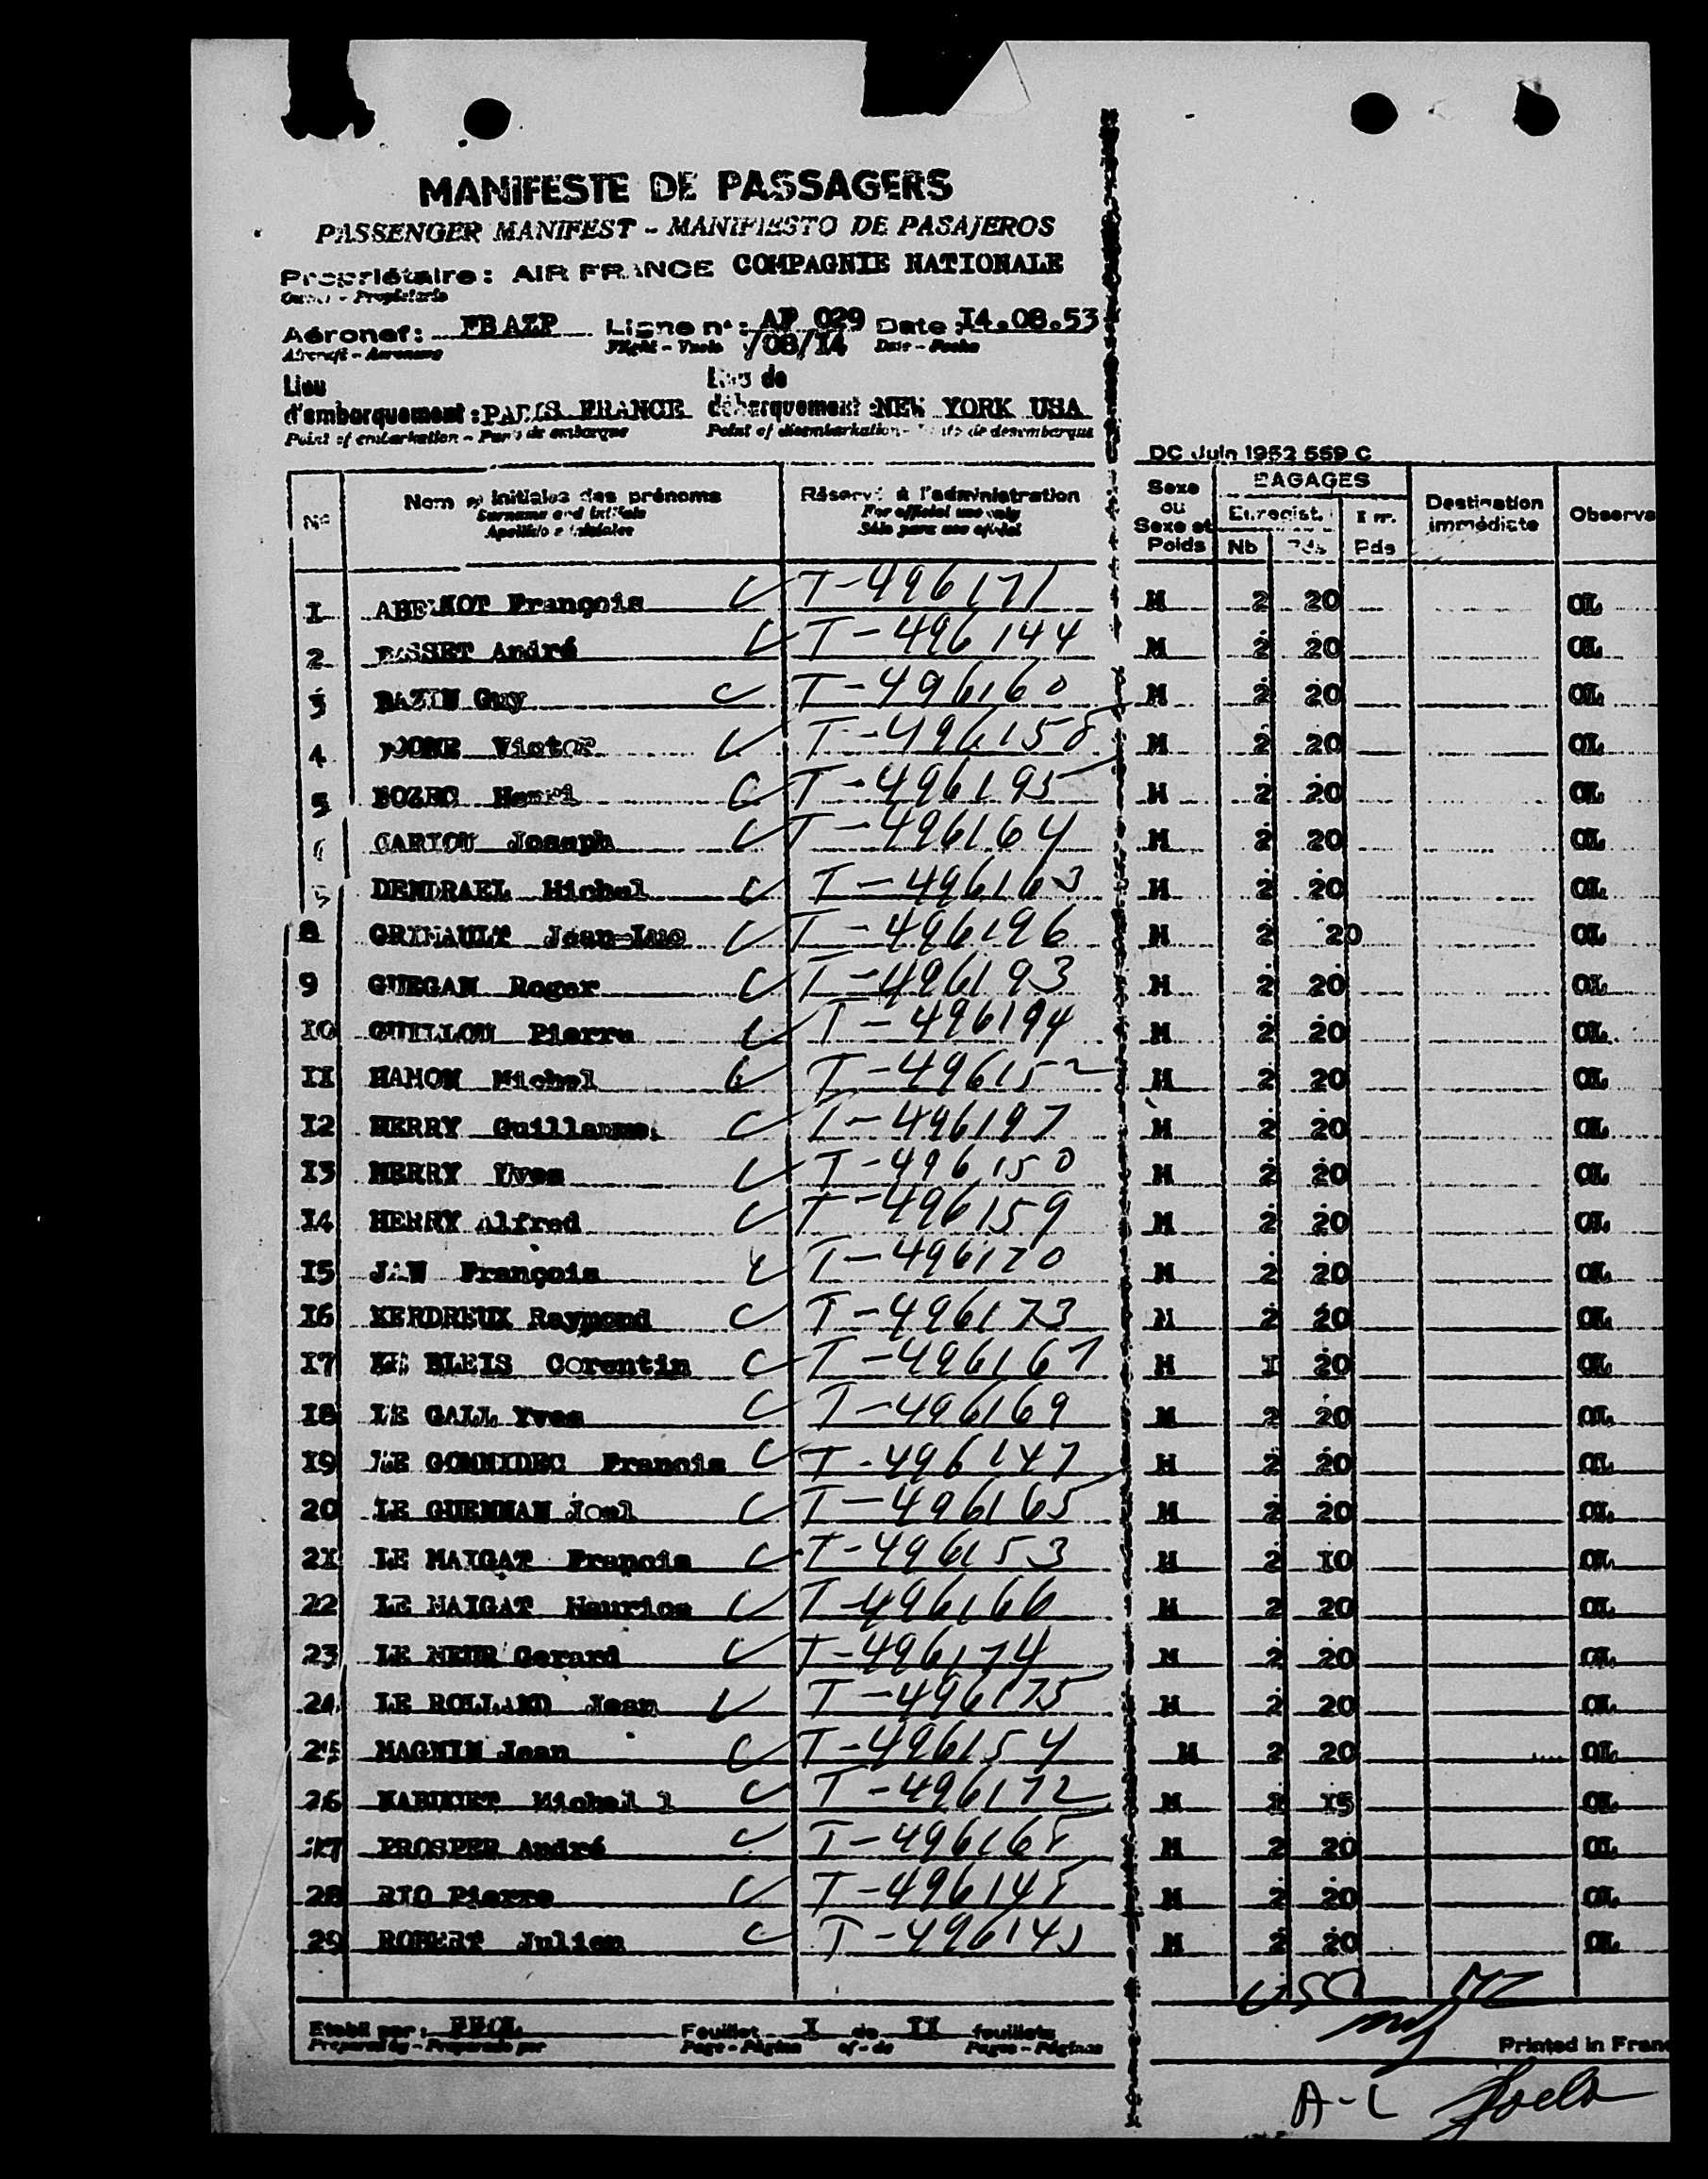 MANIFESTE DE PASSAGERS
PASSENGER MANIFEST - MANIFIESTO DE PASAJEROS
Propriétaire: AIR FRANCE COMPAGNIE NATIONALE
Owner - Propietario
Aéronef: FBAZP Ligne n°: AF 029 Date: I4.08.53
Aircraft - Aeronave Flight - Vuelo /08/I4 Date - Fecha
Lieu Lieu de
d'embarquement: PARIS FRANCE débarquement: NEW YORK USA
Point of embarkation - Punto de embarque Point of disembarkation - Punto de desembarque
DC Juin 1952 559 C
N° Nom et initiales des prénoms Réservé à l'administration Sexe ou Sexe et Poids BAGAGES Destination immédiate Observa
Surname and initials For official use only Enregist.
Apellido e iniciales Sólo para uso oficial Nb Pds Pds
I François T-496171 M 2 20 OL
2 André T-496144 M 2 20 OL
3 BAZIN Guy T-496160 M 2 20 OL
4 Victor T-496158 M 2 20 OL
5 BOZEC Henri T-496195 M 2 20 OL
CARIOU Joseph T-496164 M 2 20 OL
Michel T-496163 M 2 20 OL
8 GRIMAULT Jean-Luc T-496196 M 2 20 OL
9 GUEGAN Roger T-496193 M 2 20 OL
IO GUILLOU Pierre T-496194 M 2 20 OL
II HAMON Michel T-496152 M 2 20 OL
I2 HERRY Guillaume T-496197 M 2 20 OL
I3 HERRY Yves T-496150 M 2 20 OL
I4 HERRY Alfred T-496159 M 2 20 OL
I5 JAN François T-496170 M 2 20 OL
I6 KERDREUX Raymond T-496173 M 2 20 OL
I7 LE BLEIS Corentin T-496167 M I 20 OL
I8 LE GALL Yves T-496169 M 2 20 OL
I9 LE GONNIDEC Francis T-496147 M 2 20 OL
20 LE GUENNAN Joel T-496165 M 2 20 OL
2I LE MAIGAT T-496153 M 2 IO OL
22 LE MAIGAT Maurice T-496166 M 2 20 OL
23 LE MEUR Gerard T-496174 M 2 20 OL
24 LE ROLLAND Jean T-496175 M 2 20 OL
25 MAGNIN Jean T-496154 M 2 20 OL
26 Michel T-496172 M I I5 OL
27 PROSPER André T-496168 M 2 20 OL
28 RIO Pierre M 2 20 OL
29 ROBERT Julien M 2 20 OL
Etabli par: Feuillet I de II feuillets
Prepared by - Preparado por Page - Página of - de Pages - Páginas
Printed in Franc
A-L